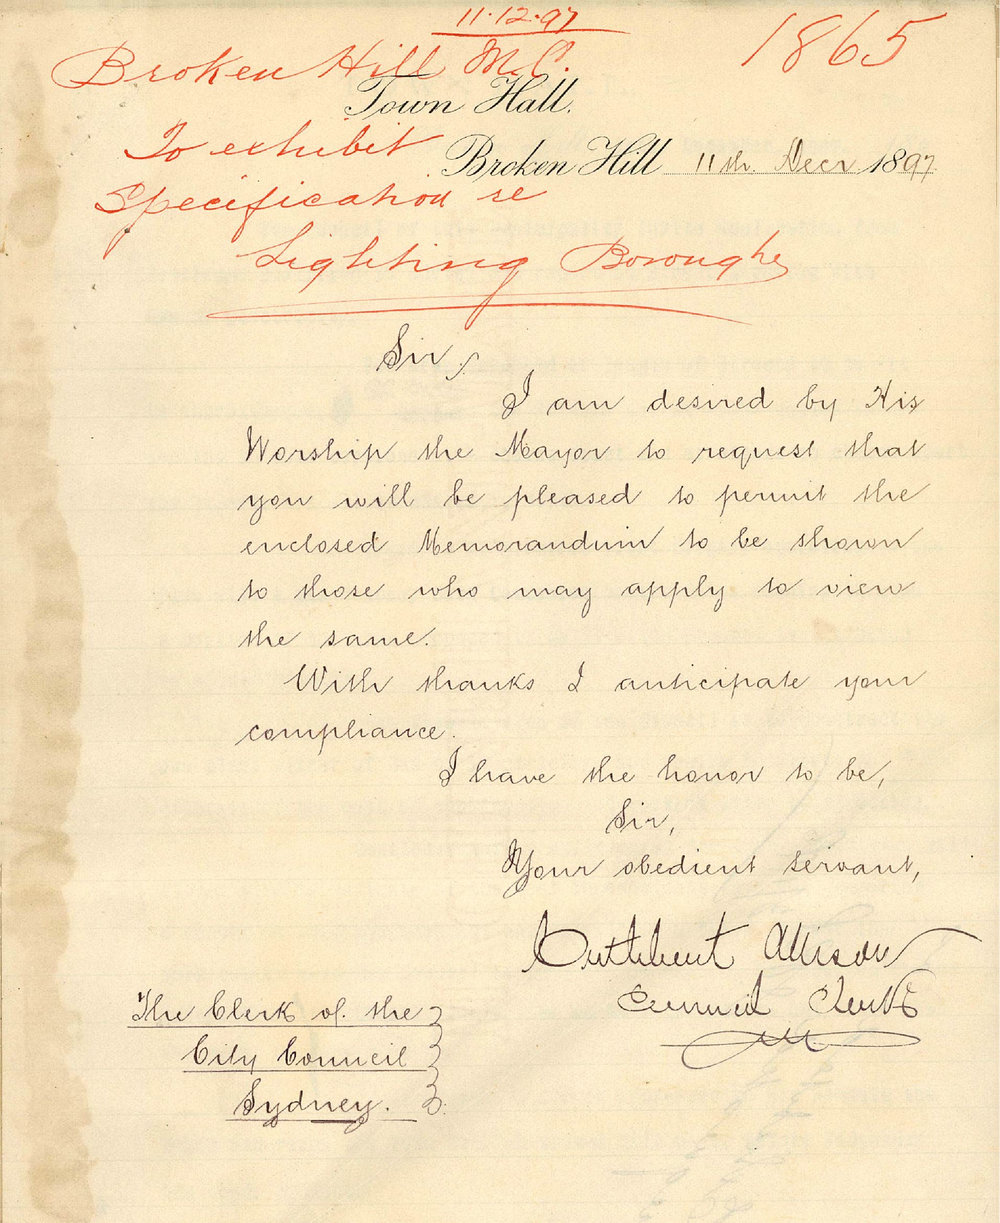 11.12.97
1865
Broken Hill M.C.
Town Hall.
To exhibit
Broken Hill 11th. Decr 1897
Specification re
Lighting Boroughs
Sir,
I am desired by His
Worship the Mayor to request that
you will be pleased to permit the
enclosed Memorandum to be shown
to those who may apply to view
the same.
With thanks I anticipate your
compliance.
I have the honor to be,
Sir,
Your obedient servant,
Cuthbert Allison
Council Clerk
The Clerk of the
City Council
Sydney.